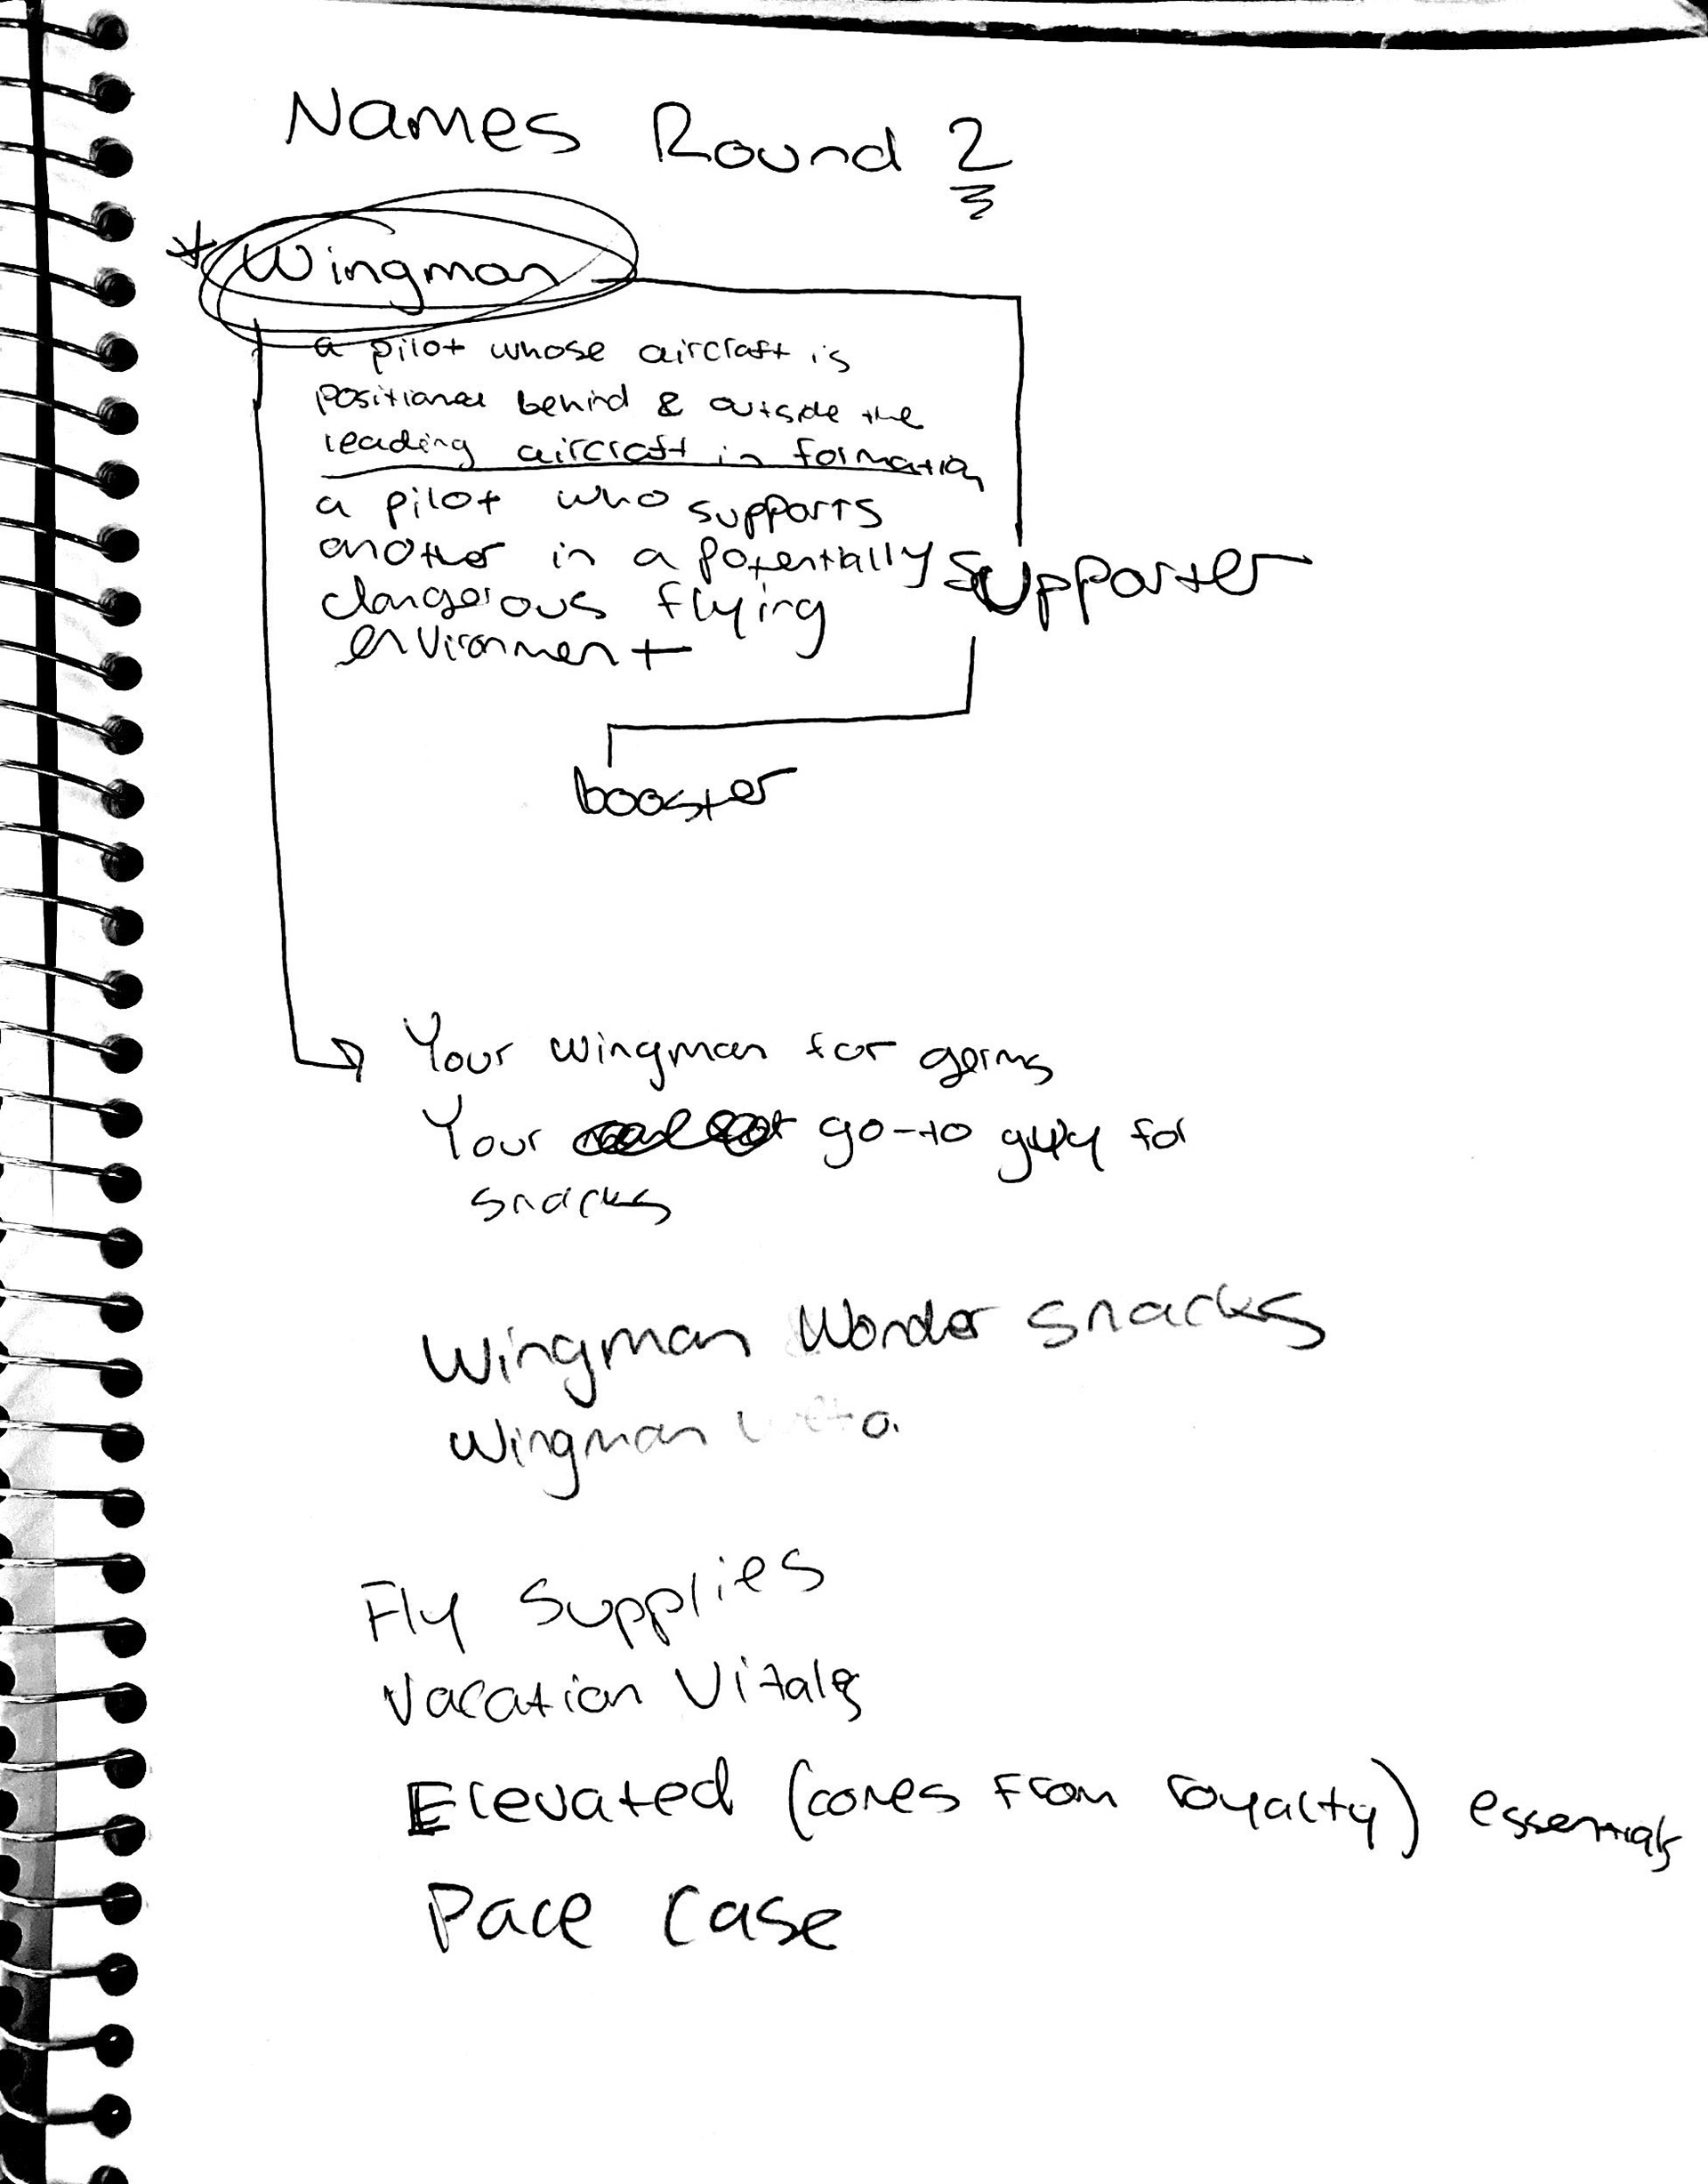 Names Round 2
* Wingman
a pilot whose aircraft is
positioned behind & outside the
leading aircraft in formation
a pilot who supports
another in a potentially
dangerous flying
environment
supporter
booster
Your wingman for germs
Your go-to guy for
snacks
Wingman Wonder snacks
Wingman
Fly Supplies
Vacation Vitals
Elevated (comes from royalty) essentials
Pace Case